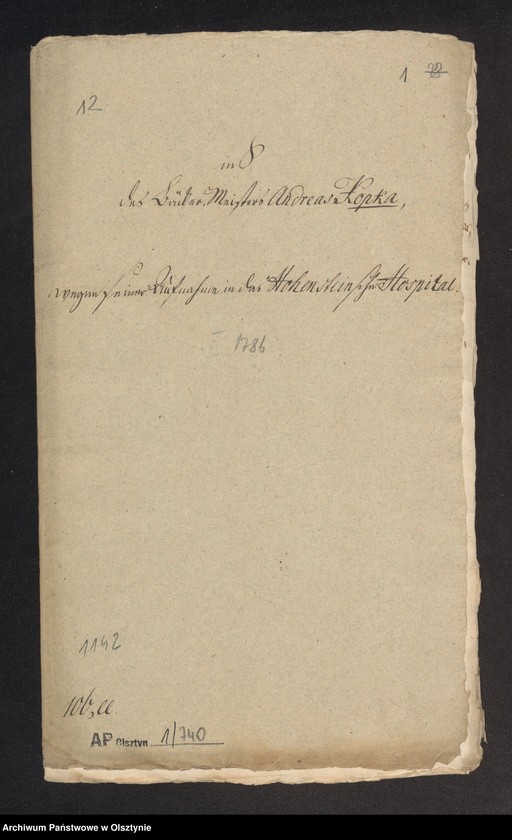 1 22
12
in S
des Bäcker Meisters Andreas Kopka,
wegen seiner Aufnahme in das Hohensteinsche Hospital.
I 1786
1142
106, ee.
AP Olsztyn 1/740
Archiwum Państwowe w Olsztynie